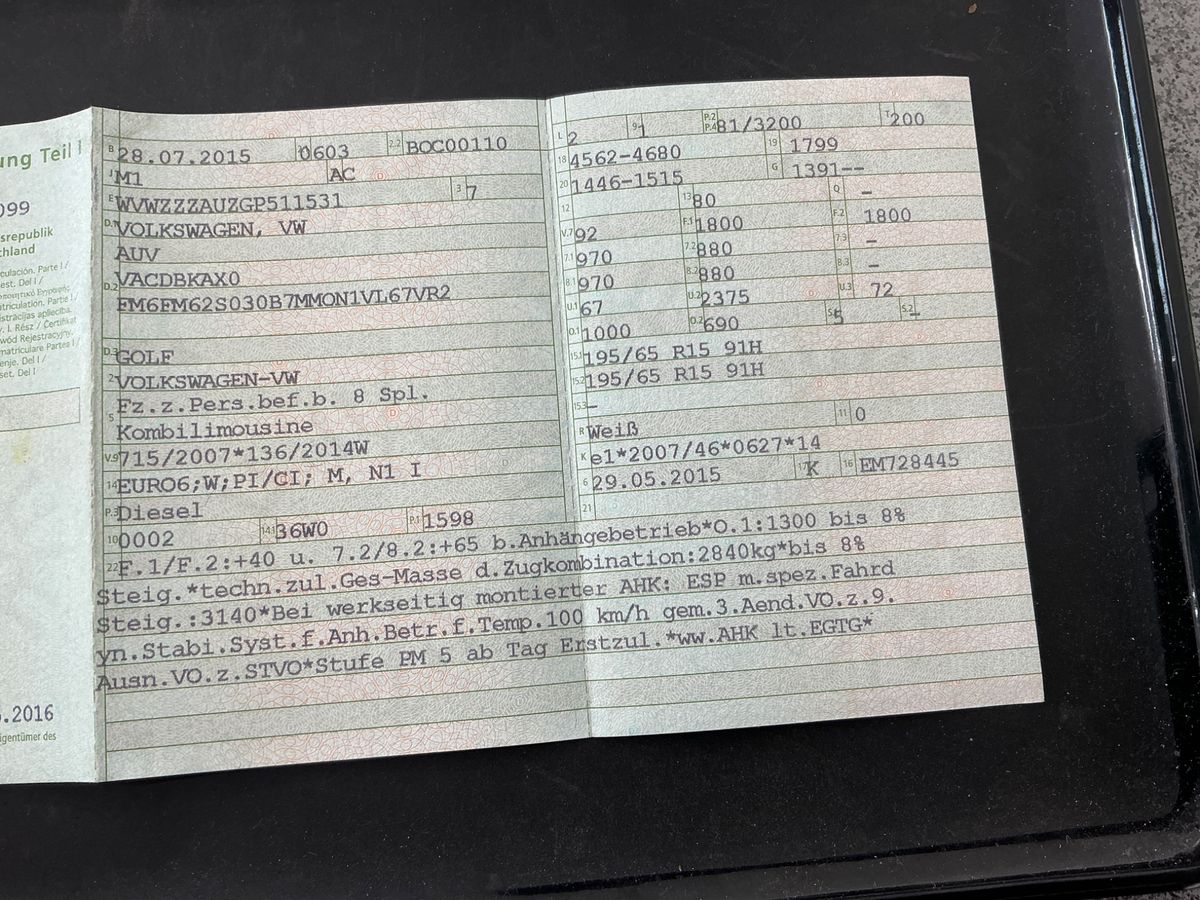 ung Teil I
099
srepublik
chland
culación. Parte I /
est. Del I /
triculation. Partie I /
istrācijas apliecība.
y. I. Rész / Ċertifikat
wód Rejestracyjny.
matriculare Partea I /
enje. Del I /
set. Del I
.2016
igentümer des
B 28.07.2015 0603 2.2 BOC00110
J M1 AC
E WVWZZZAUZGP511531 3 7
D.1 VOLKSWAGEN, VW
AUV
D.2 VACDBKAX0
FM6FM62S030B7MMON1VL67VR2
D.3 GOLF
2 VOLKSWAGEN-VW
5 Fz.z.Pers.bef.b. 8 Spl.
Kombilimousine
V.9 715/2007*136/2014W
14 EURO6;W;PI/CI; M, N1 I
P.3 Diesel
10 0002 14.1 36W0 P.1 1598
L 2 9 1 P.2 P.4 81/3200 T 200
18 4562-4680 19 1799
20 1446-1515 G 1391--
12 13 80 Q -
V.7 92 F.1 1800 F.2 1800
7.1 970 7.2 880 7.3 -
8.1 970 8.2 880 8.3 -
U.1 67 U.2 2375 U.3 72
O.1 1000 O.2 690 S.1 5 S.2 -
15.1 195/65 R15 91H
15.2 195/65 R15 91H
15.3 -
R Weiß 11 0
K e1*2007/46*0627*14
6 29.05.2015 17 K 16 EM728445
21
22 F.1/F.2:+40 u. 7.2/8.2:+65 b.Anhängebetrieb*O.1:1300 bis 8%
Steig.*techn.zul.Ges-Masse d.Zugkombination:2840kg*bis 8%
Steig.:3140*Bei werkseitig montierter AHK: ESP m.spez.Fahrd
yn.Stabi.Syst.f.Anh.Betr.f.Temp.100 km/h gem.3.Aend.VO.z.9.
Ausn.VO.z.STVO*Stufe PM 5 ab Tag Erstzul.*ww.AHK lt.EGTG*